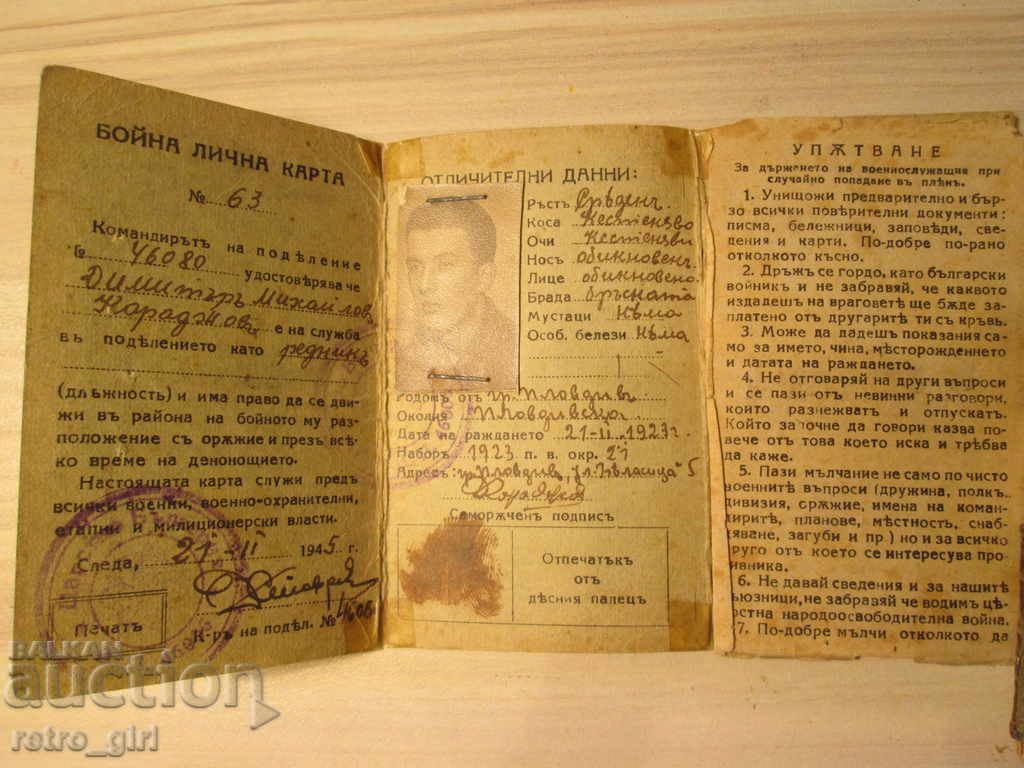 БОЙНА ЛИЧНА КАРТА
№ 63
Командирътъ на поделение
№ 46080 удостовѣрява че
Димитъръ Михайловъ
Караджовъ е на служба
въ подѣлението като редникъ
(длъжность) и има право да се дви-
жи въ района на бойното му раз-
положение съ орѫжие и презъ всѣ-
ко време на денонощието.
Настоящата карта служи предъ
всички военни, военно-охранителни,
етапни и милиционерски власти.
Следа, 21-II 1945 г.
Печатъ
К-ръ на подѣл. №
ОТЛИЧИТЕЛНИ ДАННИ:
Ръстъ Срѣденъ
Коса Кестеняво
Очи Кестеняви
Носъ обикновенъ
Лице обикновено
Брада бръсната
Мустаци Нѣма
Особ. белези Нѣма
Родомъ отъ гр. Пловдивъ
Околия Пловдивска
Дата на раждането 21-II-1923 г.
Наборъ 1923 п. в. окр. 21
Адресъ: гр. Пловдивъ, ул. "Бѣласица" 5
Саморѫченъ подписъ
Отпечатъкъ
отъ
дѣсния палецъ
УПѪТВАНЕ
За държането на военнослужащия при
случайно попадане въ плѣнъ.
1. Унищожи предварително и бър-
зо всички повѣрителни документи:
писма, бележници, заповѣди, све-
дения и карти. По-добре по-рано
отколкото късно.
2. Дръжъ се гордо, като български
войникъ и не забравяй, че каквото
издадешъ на враговетѣ ще бѫде за-
платено отъ другаритѣ ти съ кръвь.
3. Може да дадешъ показания са-
мо за името, чина, мѣсторождението
и датата на раждането.
4. Не отговаряй на други въпроси
и се пази отъ невинни разговори,
които разнежватъ и отпускатъ.
Който започне да говори казва по-
вече отъ това което иска и трѣбва
да каже.
5. Пази мълчание не само по чисто
военнитѣ въпроси (дружина, полкъ,
дивизия, срѫжие, имена на коман-
диритѣ, планове, мѣстность, снаб-
дяване, загуби и пр.) но и за всичко
друго отъ което се интересува про-
тивника.
6. Не давай сведения и за нашитѣ
съюзници, не забравяй че водимъ цѣ-
лостна народоосвободителна война.
7. По-добре мълчи отколкото да
BALKAN
auction
retro_girl